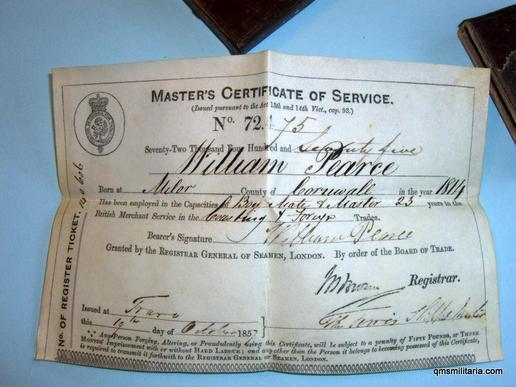 MASTER'S CERTIFICATE OF SERVICE.
(Issued pursuant to the Act 13th and 14th Vict., cap. 93.)
No. 72.475
Seventy-Two Thousand Four Hundred and Seventy five
William Pearce
Born at Milor County of Cornwall in the year 1814
Has been employed in the Capacities of Boy Mate & Master 23 years in the
British Merchant Service in the Coasting & Foreign Trades.
Bearer's Signature William Pearce
Granted by the REGISTRAR GENERAL OF SEAMEN, LONDON. By order of the BOARD OF TRADE.
Registrar.
Issued at Truro
this day of October 1857
Any Person Forging, Altering, or Fraudulently using this Certificate, will be subject to a penalty of FIFTY POUNDS, or THREE
MONTHS' Imprisonment with or without HARD LABOUR; and any other than the Person it belongs to becoming possessed of this Certificate,
is required to transmit it forthwith to the REGISTRAR GENERAL OF SEAMEN, LONDON.
No. OF REGISTER TICKET,
qmsmilitaria.com